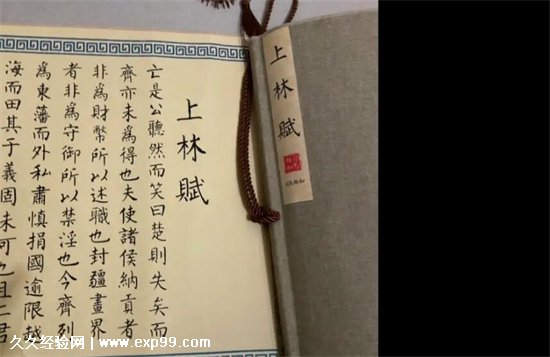 上林賦
上林賦
亡是公聽然而笑曰楚則失矣而
齊亦未為得也夫使諸侯納貢者
非為財幣所以述職也封疆畫界
者非為守御所以禁淫也今齊列
為東藩而外私肅慎捐國逾限越
海而田其于義固未可也且二君
久久经验网 | www.exp99.com